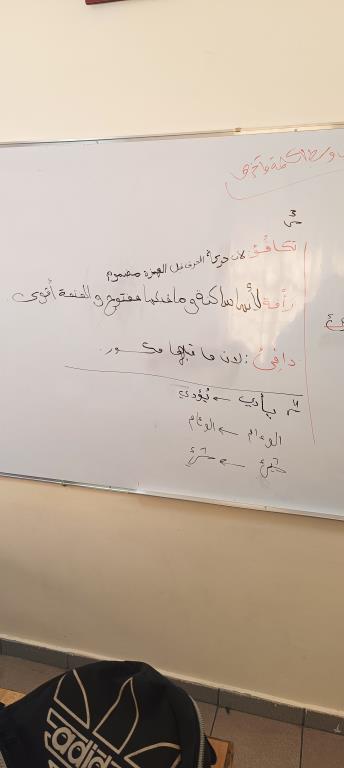 وسط الكلمة وآخرها
تكافؤ: لأن حركة الحرف قبل الهمزة مضموم
رأفة لأنها ساكنة وما قبلها مفتوح والفتحة أقوى
دافئ: لأن ما قبلها مكسور.
يأدي ← يُؤدي
الوءام ← الوئام
adidas